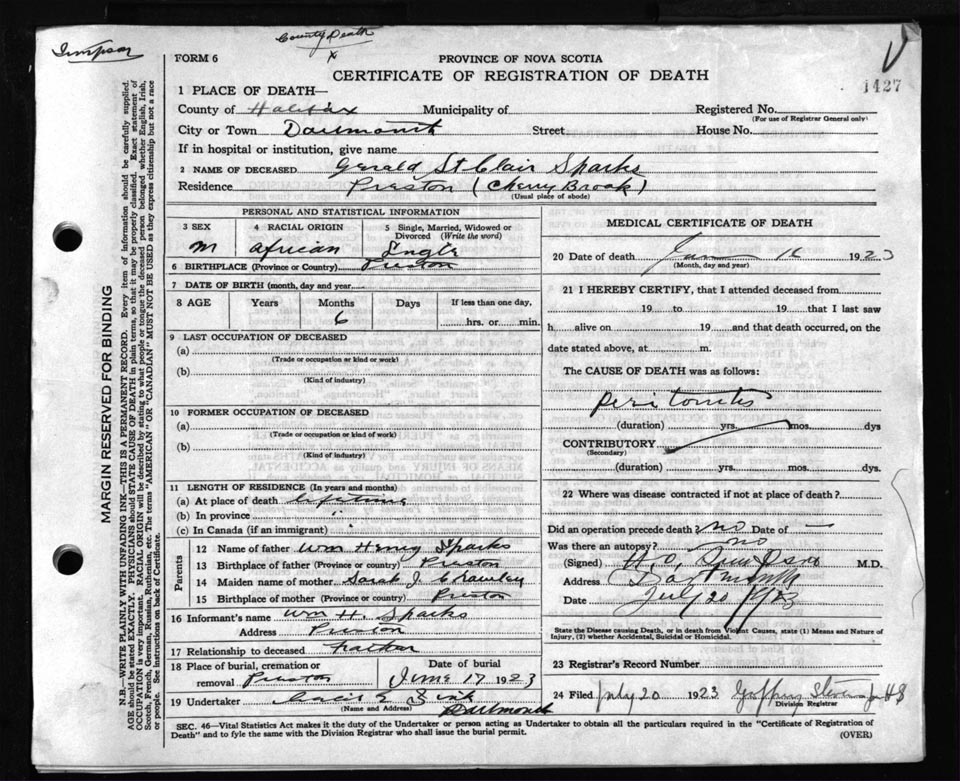 Simpson
County Death
x
1427
FORM 6
PROVINCE OF NOVA SCOTIA
CERTIFICATE OF REGISTRATION OF DEATH
1 PLACE OF DEATH—
County of Halifax Municipality of Registered No.
(For use of Registrar General only)
City or Town Dartmouth Street House No.
If in hospital or institution, give name
2 NAME OF DECEASED Gerald St Clair Sparks
Residence Preston (Cherry Brook)
(Usual place of abode)
PERSONAL AND STATISTICAL INFORMATION
3 SEX 4 RACIAL ORIGIN 5 Single, Married, Widowed or Divorced (Write the word)
M African Single
6 BIRTHPLACE (Province or Country) Preston
7 DATE OF BIRTH (month, day and year)
8 AGE Years Months Days If less than one day,
6 hrs. or min.
9 LAST OCCUPATION OF DECEASED
(a)
(Trade or occupation or kind or work)
(b)
(Kind of industry)
10 FORMER OCCUPATION OF DECEASED
(a)
(Trade or occupation or kind of work)
(b)
(Kind of industry)
11 LENGTH OF RESIDENCE (In years and months)
(a) At place of death lifetime
(b) In province "
(c) In Canada (if an immigrant) "
Parents
12 Name of father Wm Henry Sparks
13 Birthplace of father (Province or country) Preston
14 Maiden name of mother Sarah J Crawley
15 Birthplace of mother (Province or country) Preston
16 Informant's name Wm H. Sparks
Address Preston
17 Relationship to deceased Father
18 Place of burial, cremation or removal Preston Date of burial June 17 1923
19 Undertaker
(Name and Address) Dartmouth
MEDICAL CERTIFICATE OF DEATH
20 Date of death 16 1923
(Month, day and year)
21 I HEREBY CERTIFY, that I attended deceased from
19 to 19 that I last saw
h alive on 19 and that death occurred, on the
date stated above, at m.
The CAUSE OF DEATH was as follows:
Peritonitis
(duration) yrs. mos. dys
CONTRIBUTORY
(Secondary)
(duration) yrs. mos. dys.
22 Where was disease contracted if not at place of death?
Did an operation precede death? no Date of —
Was there an autopsy? no
(Signed) H. O. Simpson M.D.
Address Dartmouth
Date July 20 1923
State the Disease causing Death, or in death from Violent Causes, state (1) Means and Nature of
Injury, (2) whether Accidental, Suicidal or Homicidal.
23 Registrar's Record Number
24 Filed July 20 1923
Division Registrar
SEC. 46—Vital Statistics Act makes it the duty of the Undertaker or person acting as Undertaker to obtain all the particulars required in the "Certificate of Registration of
Death" and to fyle the same with the Division Registrar who shall issue the burial permit.
(OVER)
MARGIN RESERVED FOR BINDING
N.B.—WRITE PLAINLY WITH UNFADING INK—THIS IS A PERMANENT RECORD. Every item of information should be carefully supplied.
AGE should be stated EXACTLY. PHYSICIANS should STATE CAUSE OF DEATH in plain terms, so that it may be properly classified. Exact statement of
OCCUPATION is very important. RACIAL ORIGIN will be described by stating to what people or tongue the deceased person belonged whether English, Irish,
Scotch, French, German, Russian, Ruthenian, etc. The terms "AMERICAN" OR "CANADIAN" MUST NOT BE USED as they express citizenship but not a race
or people. See instructions on back of Certificate.